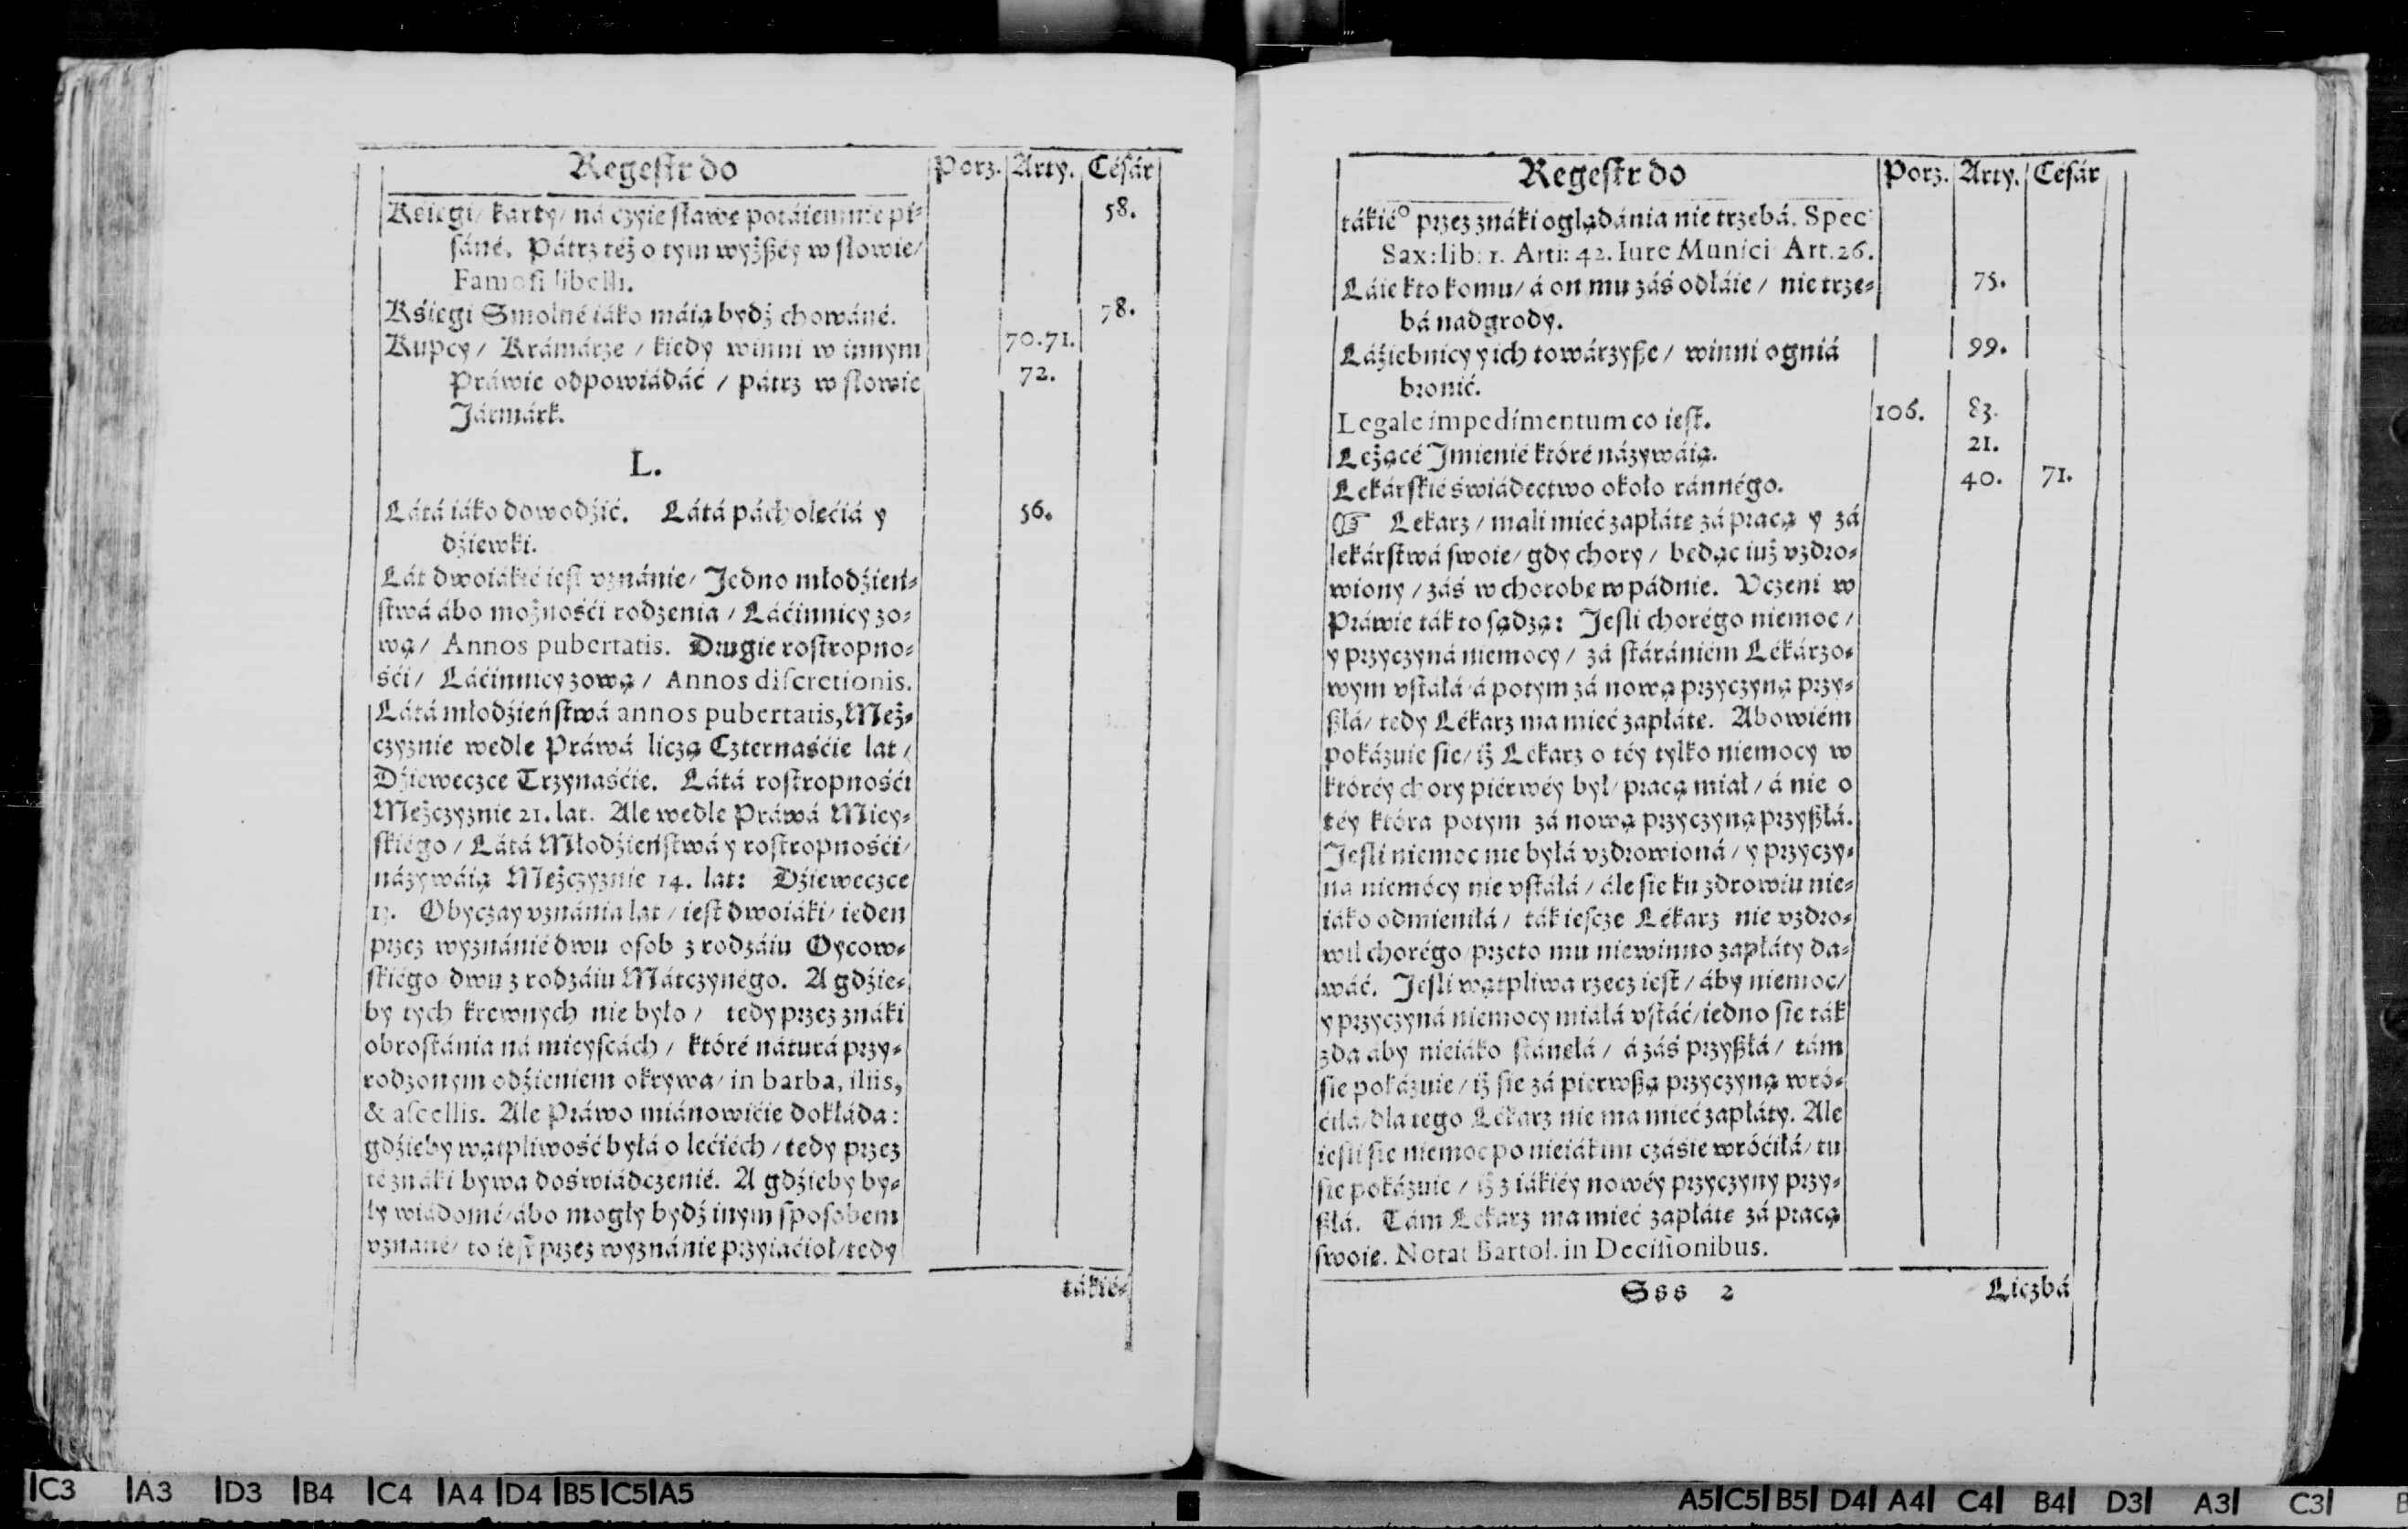 Regestr do Porz. Arty. Césár
Kśięgi/ karty/ ná czyie sławę potáiemnie pi- 58.
sáné. Pátrz też o tym wyższéy w słowie/
Famosi libelli.
Kśięgi Smolné iáko máią bydź chowáné. 78.
Kupcy/ Krámárze/ kiedy winni w innym 70.71.
Práwie odpowiádáć/ pátrz w słowie 72.
Jármárk.
L.
Látá iáko dowodźić. Látá pácholęćiá y 56.
dźiewki.
Lát dwoiákié iest vznánie/ Jedno młodźień-
stwá ábo możnośći rodzenia/ Łáćinnicy zo-
wą/ Annos pubertatis. Drugie rostropno-
śći/ Łáćinnicy zową/ Annos discretionis.
Látá młodźieństwá annos pubertatis, Męż-
czyznie wedle Práwá liczą Czternaśćie lat/
Dźieweczce Trzynaśćie. Látá rostropnośći
Mężczyznie 21. lat. Ale wedle Práwá Miey-
skiégo/ Látá Młodźieństwá y rostropnośći/
názywáią Mężczyznie 14. lat: Dźieweczce
13. Obyczay vznánia lat/ iest dwoiáki/ ieden
przez wyznánié dwu osob z rodzáiu Oycow-
skiégo dwu z rodzáiu Mátczynégo. A gdźie-
by tych krewnych nie było/ tedy przez znáki
obrostánia ná mieyscách/ któré náturá przy-
rodzonym odźieniem okrywa/ in barba, iliis,
& ascellis. Ale Práwo miánowićie dokłáda:
gdźieby wątpliwość byłá o lećiéch/ tedy przez
té znáki bywa doświádczenié. A gdźieby by-
ły wiádomé/ ábo mogły bydź inym sposobem
vznané/ to iest przez wyznánie przyiaćioł/ tedy
tákié-
Regestr do Porz. Arty. Césár
tákié° przez znáki oglądánia nie trzebá. Spec:
Sax: lib: 1. Arti: 42. Iure Munici Art. 26.
Łáie kto komu/ á on mu záś odłáie/ nie trze- 75.
bá nadgrody.
Łáźiebnicy y ich towárzysze/ winni ogniá 99.
bronić.
Legale impedimentum co iest. 106. 83.
Leżącé Jmienié któré názywáią. 21.
Lekárskié świádectwo około ránnégo. 40. 71.
☞ Lekarz/ mali mieć zapłátę zá pracą y zá
lekárstwá swoie/ gdy chory/ będąc iuż vzdro-
wiony/ záś w chorobę wpádnie. Vczeni w
Práwie ták to sądzą: Jesli chorégo niemoc/
y przyczyná niemocy/ zá stárániém Lékárzo-
wym vstáłá/ á potym zá nową przyczyną przy-
szłá/ tedy Lékarz ma mieć zapłátę. Abowiém
pokázuie się/ iż Lékarz o téy tylko niemocy w
któréy chory piérwéy był/ pracą miał/ á nie o
téy która potym zá nową przyczyną przyszłá.
Jesli niemoc nie byłá vzdrowioná/ y przyczy-
na niemócy nie vstáłá/ ále się ku zdrowiu nie-
iáko odmieniłá/ ták iescze Lékarz nie vzdro-
wił chorégo/ przeto mu niewinno zapłáty da-
wáć. Jesli wątpliwa rzecz iest/ áby niemoc/
y przyczyná niemocy miáłá vstáć/ iedno się ták
zda áby nieiáko stánęłá/ á záś przyszłá/ tám
się pokázuie/ iż się zá pierwszą przyczyną wró-
ćiłá/ dla tego Lékarz nie ma mieć zapłáty. Ale
iesli się niemoc po nieiákim czáśie wróćiłá/ tu
się pokázuie/ iż z iákiéy nowéy przyczyny przy-
szłá. Tám Lékarz ma mieć zapłátę zá pracą
swoię. Notat Bartol. in Decisionibus.
Sss 2 Liczbá
C3 A3 D3 B4 C4 A4 D4 B5 C5 A5
A5 C5 B5 D4 A4 C4 B4 D3 A3 C3